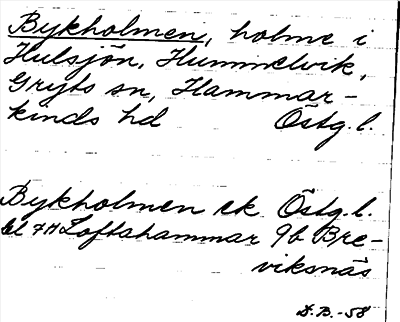 Bykholmen, holme i
Hulsjön, Hummelvik,
Gryts sn, Hammar-
kinds hd Östg.l.
Bykholmen ek. Östg.l.
bl 7H Loftahammar 9b Bre-
viksnäs
D.B.-58